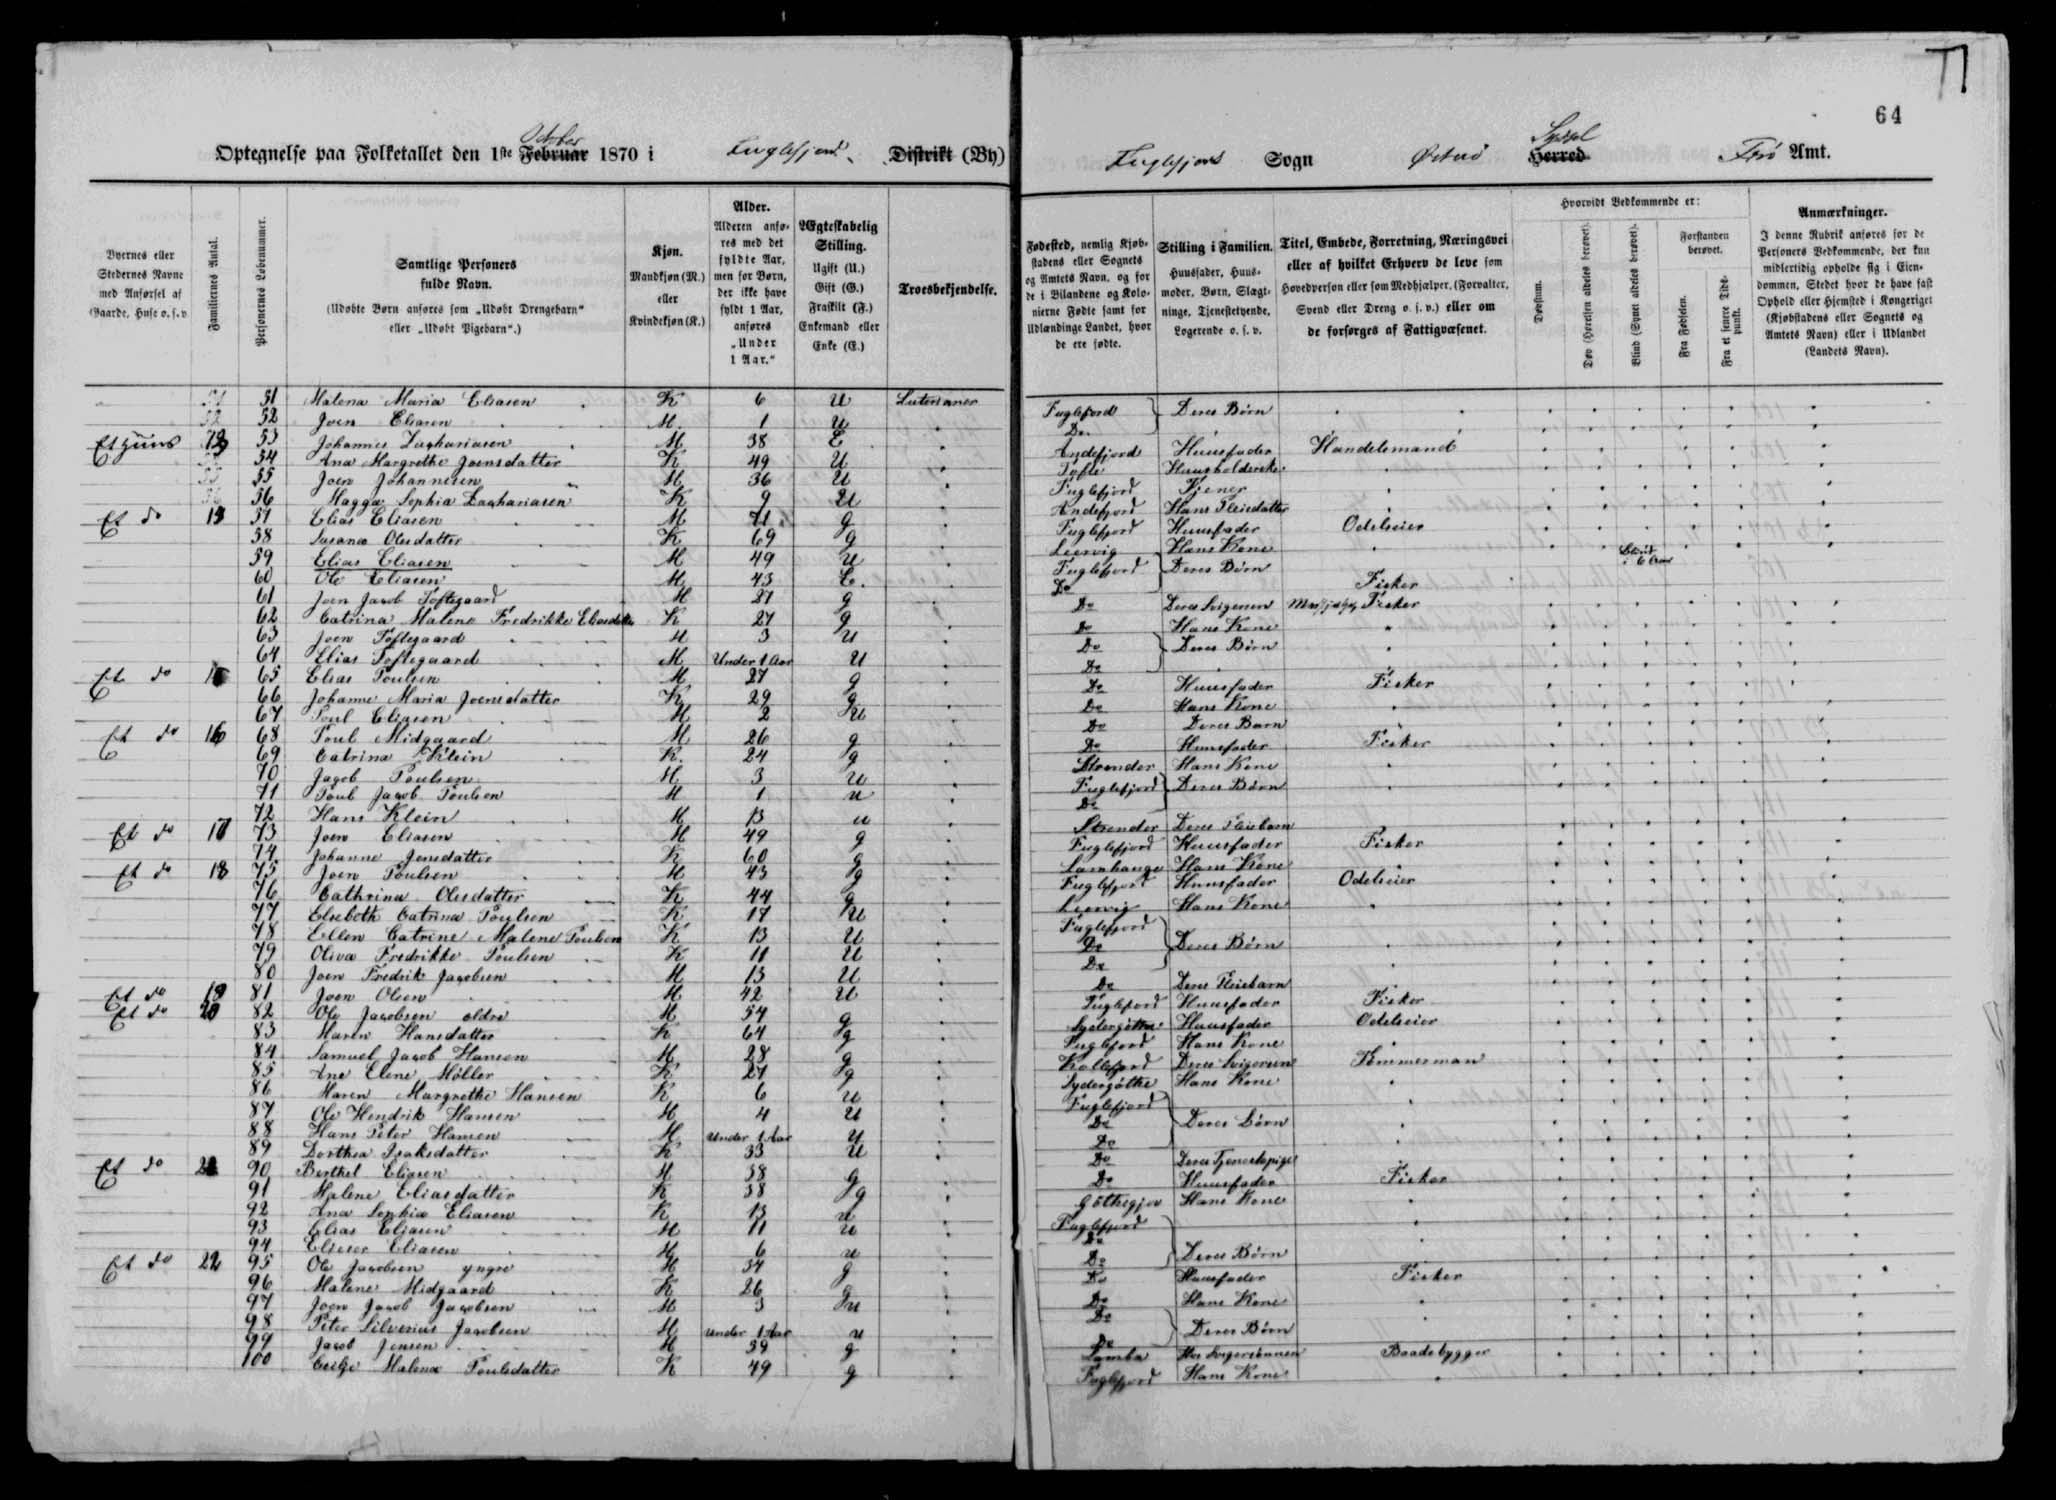 64
Optegnelse paa Folketallet den 1ste Februar October 1870 i Fuglefjord Distrikt (By)
Fuglefjord Sogn Østerö Herred Syssel Færö Amt.
Byernes eller Stedernes Navne med Anførsel af Gaarde, Huse o. s. v.
Familiernes Antal.
Personernes Løbenummer.
Samtlige Personers fulde Navn.
(Udøbte Børn anføres som „Udøbt Drengebarn“ eller „Udøbt Pigebarn“.)
Kjøn.
Mandkjøn (M.) eller Kvindekjøn (K.)
Alder.
Alderen anføres med det fyldte Aar, men for Børn, der ikke have fyldt 1 Aar, anføres „Under 1 Aar.“
Ægteskabelig Stilling.
Ugift (U.) Gift (G.) Fraskilt (F.) Enkemand eller Enke (E.)
Troesbekjendelse.
Fødested, nemlig Kjøbstadens eller Sognets og Amtets Navn, og for de i Bilandene og Kolonierne Fødte samt for Udlændinge Landet, hvor de ere fødte.
Stilling i Familien.
Huusfader, Huusmoder, Børn, Slægtninge, Tjenestetyende, Logerende o. s. v.
Titel, Embede, Forretning, Næringsvei eller af hvilket Erhverv de leve som Hovedperson eller som Medhjælper, (Forvalter, Svend eller Dreng o. s. v.) eller om de forsørges af Fattigvæsenet.
Hvorvidt Vedkommende er:
Døvstum.
Døv (Hørelsen aldeles berøvet).
Blind (Synet aldeles berøvet).
Forstanden berøvet.
Fra Fødselen.
Fra et senere Tidspunkt.
Anmærkninger.
I denne Rubrik anføres for de Personers Vedkommende, der kun midlertidig opholde sig i Eiendommen, Stedet hvor de have fast Ophold eller Hjemsted i Kongeriget (Kjøbstadens eller Sognets og Amtets Navn) eller i Udlandet (Landets Navn).
51 Malena Maria Eliasen K 6 U Luterianer Fuglefjord Deres Børn
52 Joen Eliasen M 1 U Do
Et Huus 53 Johannes Zachariasen M 38 E Andefjord Huusfader Handelsmand
54 Ana Margrethe Joensdatter K 49 U Tofte Huusholderske
55 Joen Johannesen M 36 U Fuglefjord Tjener
56 Magga Sophia Zachariasen K 9 U Andefjord Hans Pleiedatter
Et do 57 Elias Eliasen M 71 g Fuglefjord Huusfader Odelseier
58 Susana Olesdatter K 69 g Leervig Hans Kone
59 Elias Eliasen M 49 U Fuglefjord Deres Børn Blind
60 Ole Eliasen M 43 E. Do Fisker
61 Joen Jacob Toftegaard M 27 g Do Deres Svigersøn Fisker
62 Catrina Malene Fredrikke Eliasdatter K 27 g Do Hans Kone
63 Joen Toftegaard M 3 U Do Deres Børn
64 Elias Toftegaard M Under 1 Aar U Do
Et do 65 Elias Poulsen M 27 g Do Huusfader Fisker
66 Johanne Maria Joensdatter K 29 g Do Hans Kone
67 Poul Eliasen M 2 U Do Deres Barn
Et do 16 68 Poul Midgaard M 26 g Do Huusfader Fisker
69 Catrina Klein K. 24 g Strender Hans Kone
70 Jacob Poulsen M 3 U Fuglefjord Deres Børn
71 Poul Jacob Poulsen M 1 u Do
72 Hans Klein M 13 u Strender Deres Pleiebarn
Et do 17 73 Joen Eliasen M 49 g Fuglefjord Huusfader Fisker
74 Johanne Jensdatter K 60 g Lamhauge Hans Kone
Et do 18 75 Joen Poulsen M 43 g Fuglefjord Huusfader Odelseier
76 Cathrina Olesdatter K 44 g Leervig Hans Kone
77 Elsebeth Catrina Poulsen K 17 U Fuglefjord Deres Børn
78 Ellen Catrine Malene Poulsen K 13 U Do
79 Oliva Fredrikke Poulsen K 11 U Do
80 Joen Fredrik Jacobsen M 13 U Do Deres Pleiebarn
Et do 19 81 Joen Olsen M 42 U Fuglefjord Huusfader Fisker
Et do 20 82 Ole Jacobsen ældre M 54 g Sydergöthe Huusfader Odelseier
83 Maren Hansdatter K 64 g Fuglefjord Hans Kone
84 Samuel Jacob Hansen M 28 g Kollefjord Deres Svigersøn Tømmerman
85 Ane Elene Möller K 27 g Sydergöthe Hans Kone
86 Maren Margrethe Hansen K 6 u Fuglefjord Deres Børn
87 Ole Hendrik Hansen M 4 U Do
88 Hans Peter Hansen M Under 1 Aar U Do
89 Dorthea Isaksdatter K 33 U Do Deres Tjenestepige
Et do 21 90 Berthel Eliasen M 38 g Do Huusfader Fisker
91 Malene Eliasdatter K 38 g Göthegjov Hans Kone
92 Ana Sophia Eliasen K 13 u Fuglefjord
93 Elias Eliasen M 11 u Do
94 Elieser Eliasen M 6 u Do Deres Børn
Et do 22 95 Ole Jacobsen yngre M 34 g Do Huusfader Fisker
96 Malene Midgaard K 26 g Do Hans Kone
97 Joen Jacob Jacobsen M 3 u Do Deres Børn
98 Peter Silverius Jacobsen M Under 1 Aar u Do
99 Jacob Jensen M 59 g Lamba Hos Svigersønnen Baadebygger
100 Malena Poulsdatter K 49 g Fuglefjord Hans Kone